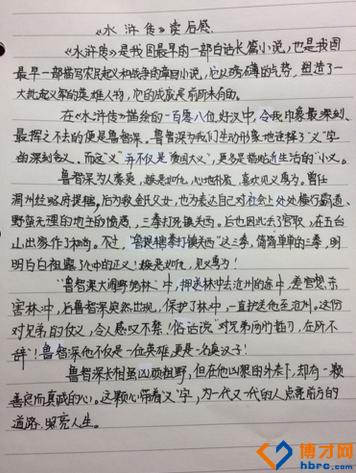 《水浒传》读后感
《水浒传》是我国最早的一部白话长篇小说,也是我国
最早一部描写农民起义和战争的章回小说,它以磅礴的气势,塑造了一
大批起义军的英雄人物,它的成就是前所未有的。
在《水浒传》描绘的一百零八位好汉中,令我印象最深刻、
最挥之不去的便是鲁智深。鲁智深为我们生动形象地诠释了“义”字
的深刻含义,而这“义”并不仅是“爱国大义”,更多是贴近生活的“小义”。
鲁智深为人豪爽,嫉恶如仇,心地朴实,喜欢见义勇为。曾任
渭州经略府提辖,后为救金氏父女,也为表达自己对社会上处处横行霸道、
野蛮无理的地主的愤慨,三拳打死镇关西。后也因此丢了官职,在五台
山出家作了和尚。不过,“鲁提辖拳打镇关西”这三拳,简简单单的三拳,明
明白白袒露了心中的正义!嫉恶如仇,见义勇为!
“鲁智深大闹野猪林”中,押送林冲去沧州的途中,差官想杀
害林冲,后鲁智深突然出现,保护了林冲,一直护送他至沧州。这份
对兄弟的仗义,令人感叹不禁!俗话说“对兄弟两肋插刀,在所不
辞”!鲁智深他不仅是一位英雄,更是一名真汉子!
鲁智深长相虽凶顽粗野,但在他凶罪的外表下,却有一颗
善良而真诚的心。这颗心带着“义”字,为一代又一代的人点亮前方的
道路,照亮人生。
博才网
hbrc.com